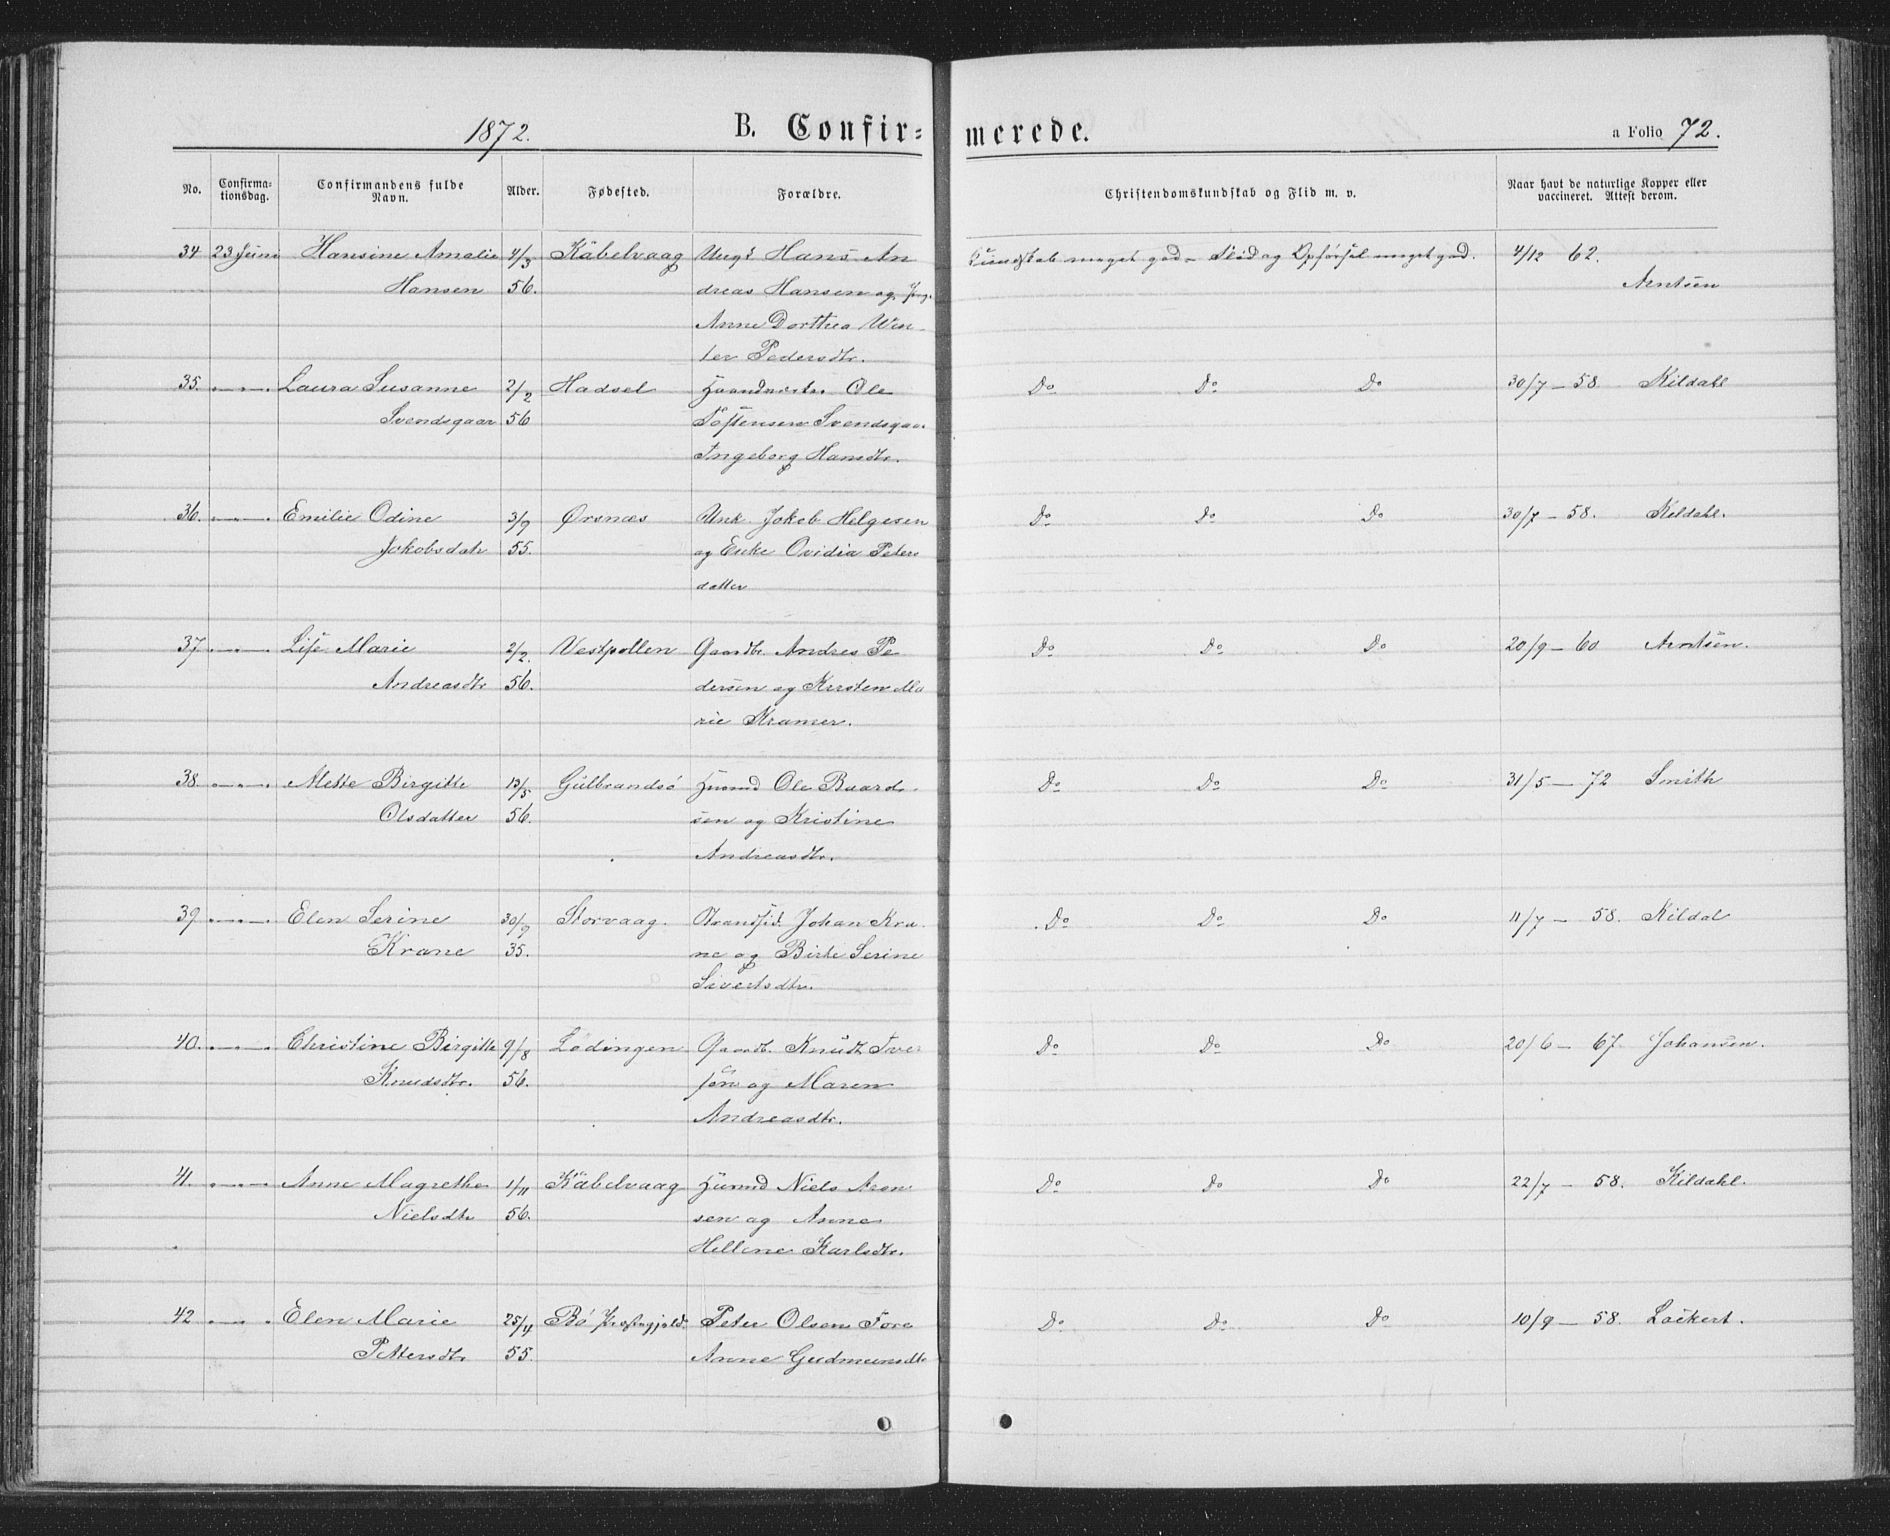 1872.
B. Confir=
merede.
a Folio 72.
No.
Confirma-
tionsdag.
Confirmandens fulde
Navn.
Alder.
Fødested.
Forældre.
Christendomskundskab og Flid m. v.
Naar havt de naturlige Kopper eller
vaccineret. Attest derom.
34 23 Juni Hansine Amalie 4/3 Kabelvaag Ungk Hans An Kundskab meget god - Flid og Opførsel meget god. 4/12 62.
Hansen 56. dreas Hansen og Pig. Arntsen
Anne Dorthea Win
ter Pedersdtr.
35. Laura Susanne 2/2 Hadsel Haandværks. Ole Do Do Do 30/7 - 58. Kildahl
Svendsgaar 56 Toftensen Svendsgaa.
Ingeborg Hansdtr.
36. Emilie Odine 3/9 Ørsnæs Unk. Jokob Helgesen Do Do Do 30/7 - 58. Kildahl.
Jokobsdatr 55. og Enke Ovidia Peters
datter
37. Lise Marie 2/2. Vestpollen Gaardbr. Andres Pe Do Do Do 20/9 - 60 Arntsen.
Andreasdtr 56. dersen og Kirsten Ma
rie Kramer.
38. Mette Birgitte 13/5 Gulbrandsö Husmd Ole Baard Do Do Do 31/5 - 72 Smith
Olsdatter 56. sen og Kristine
Andreasdtr.
39 Elen Serine 30/9 Storvaag. Strandsid. Johan Kra Do Do Do 11/7 - 58. Kildal
Krane 35. ne og Birte Serine
Sivertsdtr.
40. Christine Birgitte 9/8 Lødingen Gaardb. Knudt Iver Do Do Do 20/6 - 67. Johansen.
Knudsdtr. 56. sen og Maren
Andreasdtr.
41. Anne Magrethe 1/11 Kabelvaag Husmd Niels Aron Do Do Do 22/7 - 58. Kildahl.
Nielsdtr 56. sen og Anne
Helline Karlsdtr.
42 Elen Marie 25/11 Bö Præstegjeld Peter Olsen Fore Do Do Do 10/9 - 58. Lockert.
Pettersdtr 55. Anne Gudmunsdtr